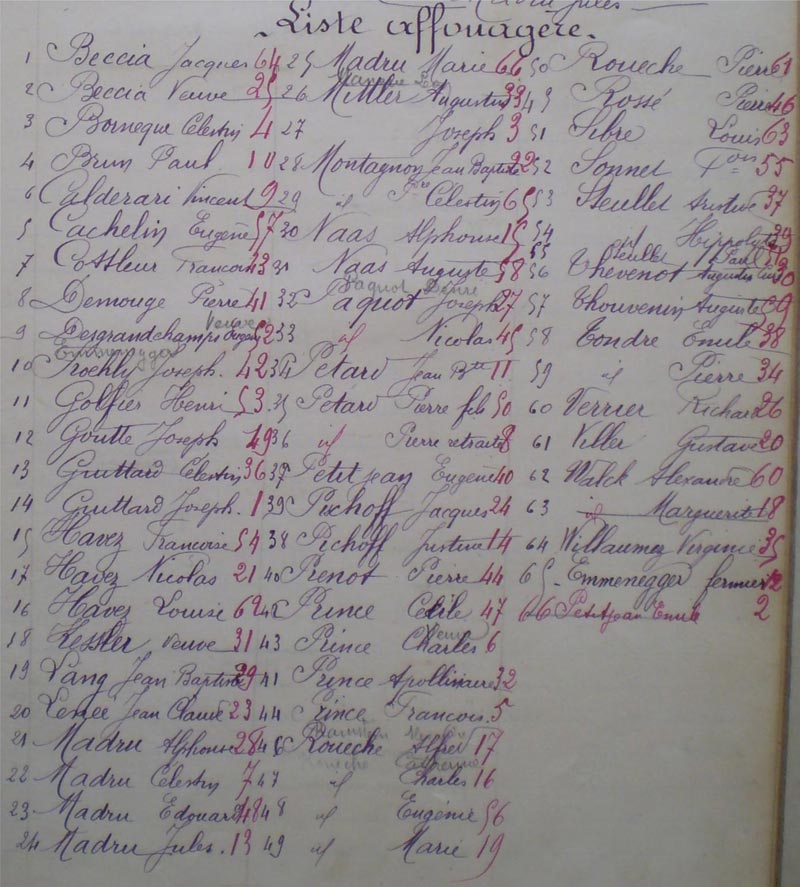 Madru Jules
Liste affouagère
1 Beccia Jacques 64
2 Beccia Veuve 25
3 Borneque Célestin 4
4 Brun Paul 10
6 Calderari Vincent 9
5 Cachelin Eugène 57
7 Cottleur Francois 33
8 Demouge Pierre 41
Veuve
9 Desgrandchamps 52
10 Froehly Joseph. 42
11 Golfier Henri 53
12 Goutte Joseph 49
13 Guittard Célestin 36
14 Guittard Joseph. 1
15 Havez Francoise 54
17 Havez Nicolas 21
16 Havez Louise 69
18 Kessler Veuve 31
19 Lang Jean Baptiste 29
20 Lenée Jean Claude 23
21 Madru Alphonse 28
22 Madru Célestin 7
23 Madru Edouard 48
24 Madru Jules. 13
25 Madru Marie 66
26 Mittler Augustin 39
27 Joseph 3
28 Montagnon Jean Baptiste 22
29 id Célestin 65
30 Naas Alphonse 15
31 Naas Auguste 58
Paquot
32 Paquot Joseph 27
33 id Nicolas 45
34 Petard Jean Bte 11
35 Petard Pierre fils 50
36 id Pierre retraité 8
37 Petitjean Eugène 40
39 Pichoff Jacques 24
38 Pichoff Justine 14
40 Prenot Pierre 44
42 Prince Cécile 47
Veuve
43 Prince Charles 6
41 Prince Apollinaire 32
44 Prince Francois. 5
46 Roueche Alfred 17
47 id Charles 16
48 id Eugénie 56
49 id Marie 19
50 Roueche Pierre 61
49 Rossé Pierre 46
51 Sibre Louis 63
52 Sonnet Fois 55
53 Steullet Justine 37
54 id Hippolyte
55 Steullet Paul
56 Thevenot Augustin 30
57 Thouvenin Auguste 59
58 Tondre Emile 38
59 id Pierre 34
60 Verrier Richard 26
61 Viller Gustave 20
62 Walck Alexandre 60
63 id Marguerite 18
64 Willaumez Virginie 35
65 Emmenegger fermier 12
66 Petitjean Emile 2